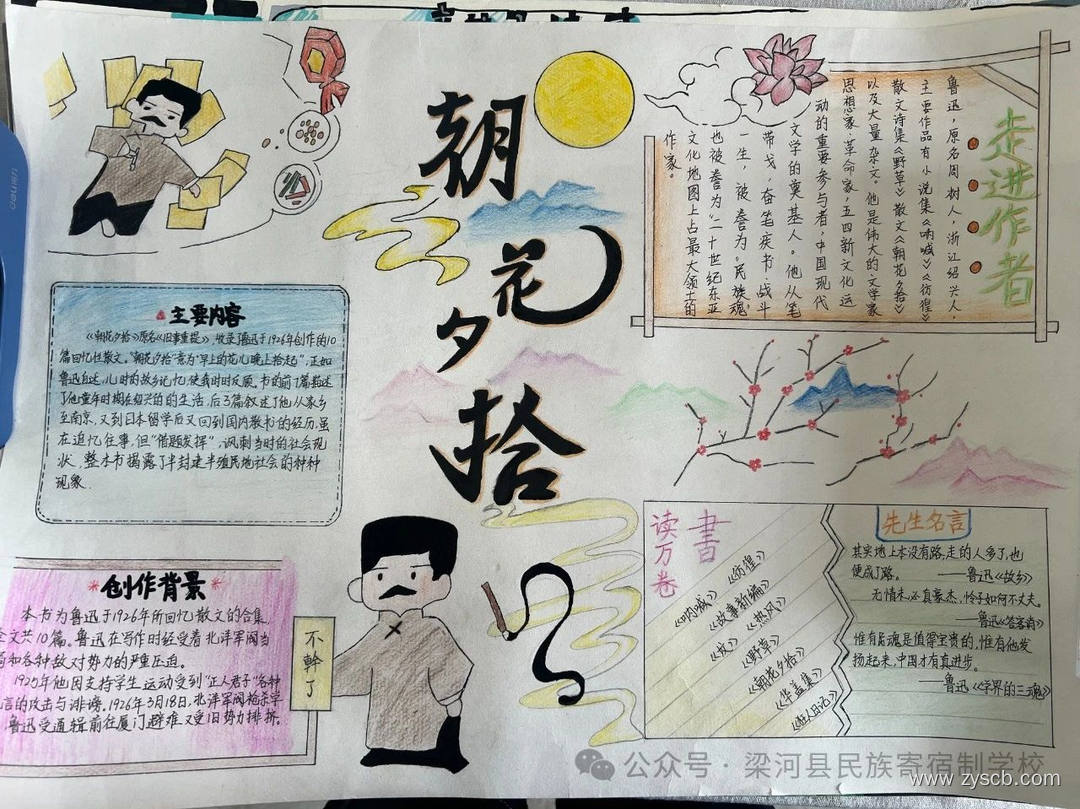 朝花夕拾
走进作者
鲁迅，原名周树人，浙江绍兴人，
主要作品有小说集《呐喊》《彷徨》
散文诗集《野草》散文《朝花夕拾》
以及大量杂文。他是伟大的文学家
思想家·革命家，五四新文化运
动的重要参与者，中国现代
文学的奠基人。他从笔
带戈，奋笔疾书，战斗
一生，被誉为"民族魂"
也被誉为"二十世纪东亚
文化地图上占最大领土的
作家。
主要内容
《朝花夕拾》原名《旧事重提》，收录鲁迅于1926年创作的10
篇回忆性散文。"朝花夕拾"意为"早上的花儿晚上拾起"，正如
鲁迅自述，儿时的故乡记忆，使我时时反顾。书的前7篇描述
了他童年时期在绍兴的的生活，后3篇叙述了他从家乡
至南京，又到日本留学后又回到国内教书的经历。虽
在追忆往事，但"借题发挥"，讽刺当时的社会现
状，整本书揭露了半封建半殖民地社会的种种
现象。
创作背景
本书为鲁迅于1926年所回忆散文的合集，
全文共10篇。鲁迅在写作时经受着北洋军阀当
局和各种敌对势力的严重压迫。
1925年他因支持学生运动受到"正人君子"各种
言的攻击与诽谤，1926年3月18日，北洋军阀枪杀学
鲁迅受通辑前往厦门避难，又受旧势力排挤。
不幹了
读万卷
書
《彷徨》
《呐喊》
《故事新编》
《热风》
《故》
《野草》
《朝花夕拾》
《华盖集》
《狂人日记》
先生名言
其实地上本没有路，走的人多了，也
便成了路。 ——鲁迅《故乡》
无情未必真豪杰，怜子如何不丈夫。
——鲁迅《答客诮》
惟有民魂是值得宝贵的，惟有他发
扬起来，中国才有真进步。
——鲁迅《学界的三魂》
公众号·梁河县民族寄宿制学校
www.zyscb.com
deli